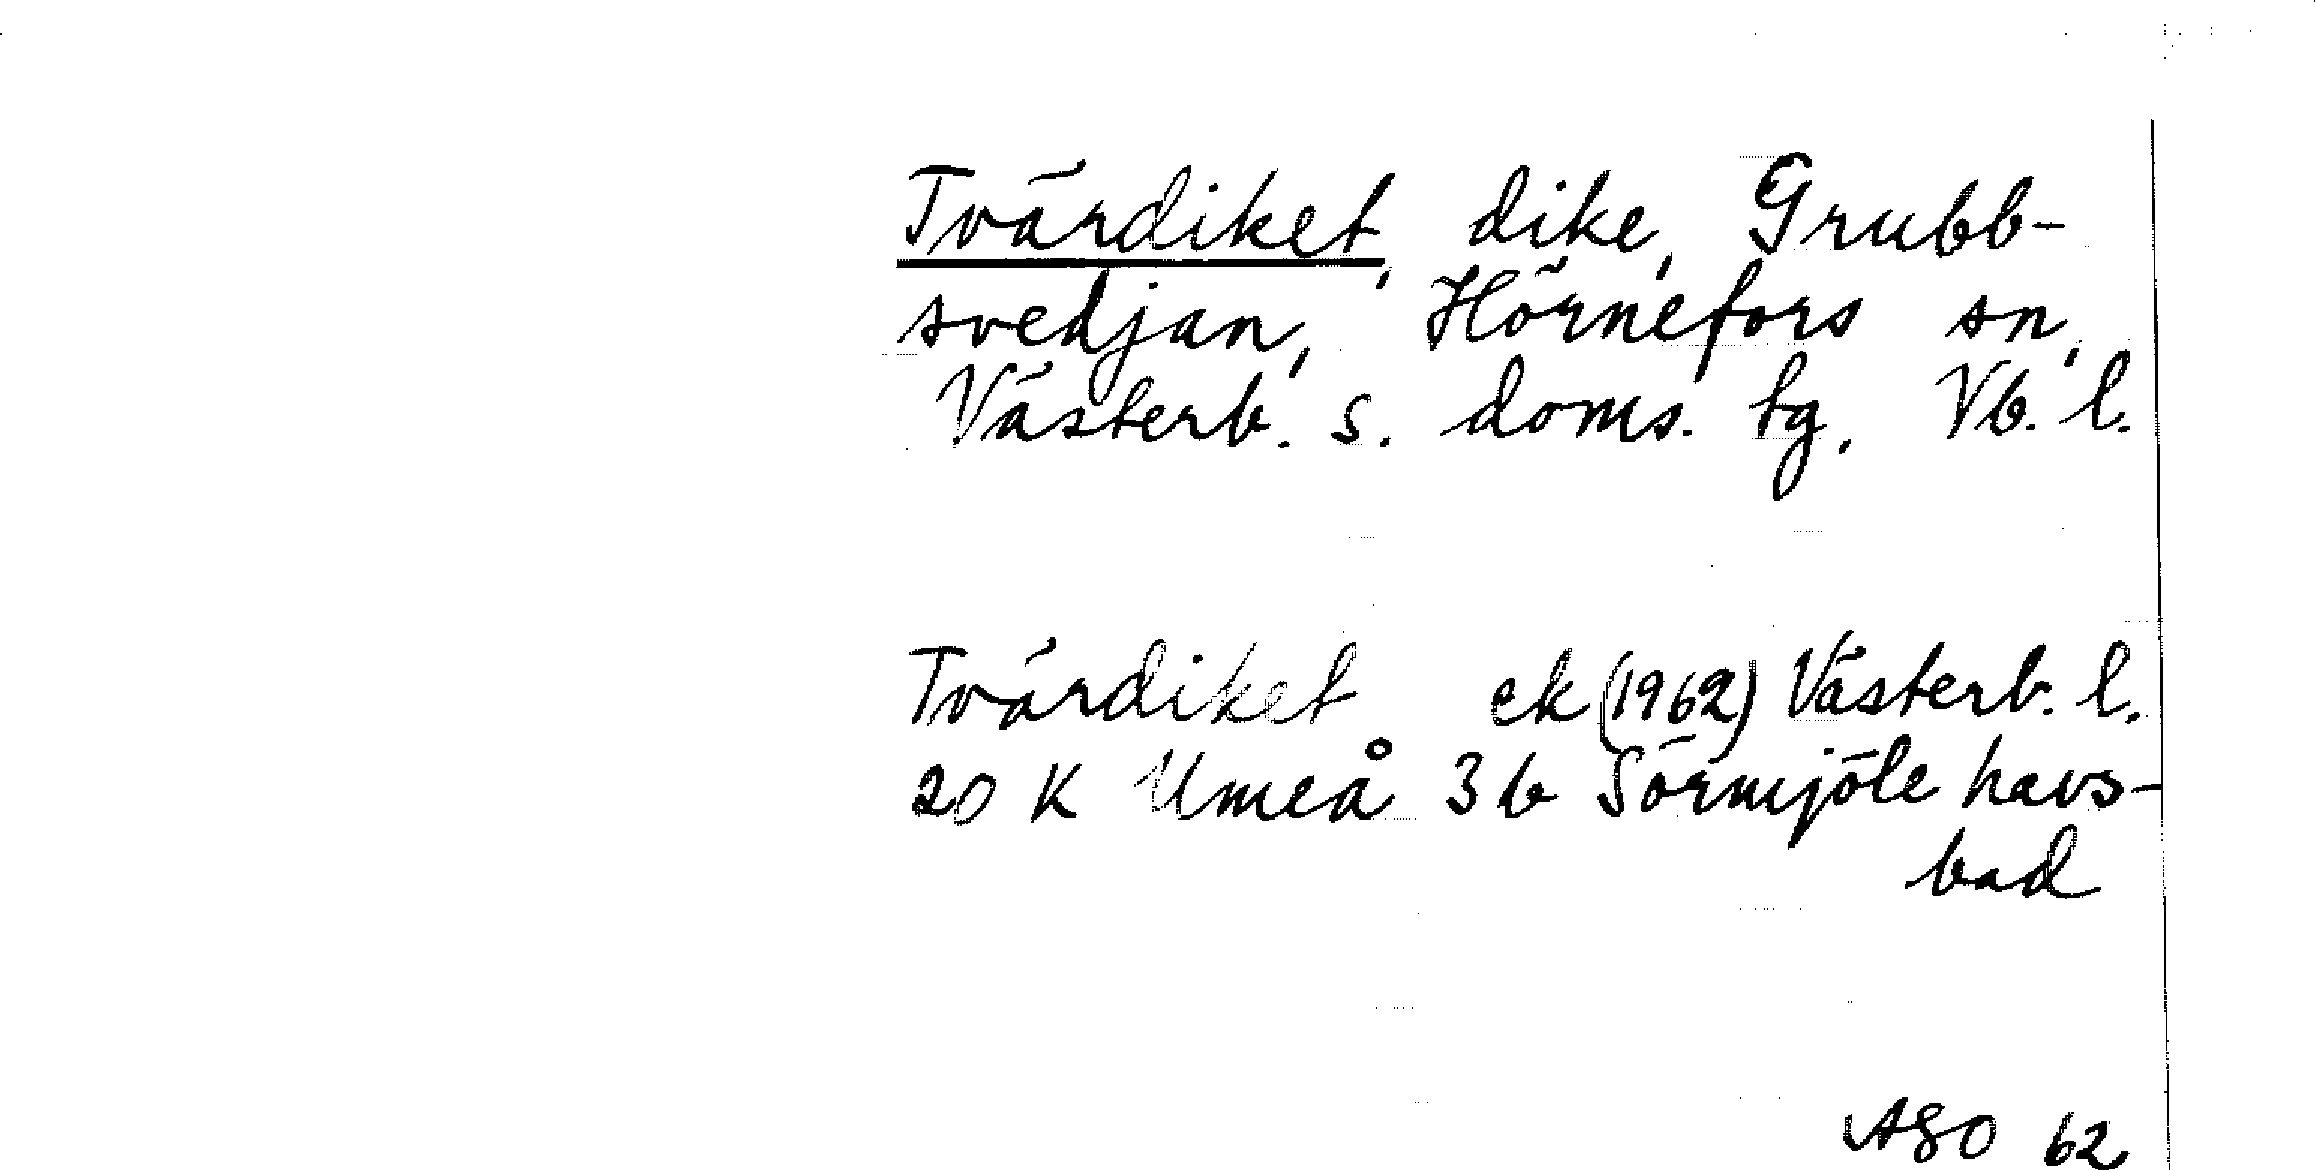 Tvärdiket, dike, Grubb-
svedjan, Hörnefors sn,
Västerb. s. doms. tg. Vb. l.
Tvärdiket ek (1962) Västerb. l.
20 K Umeå 3 b Sörmjöle havs-
bad
ASO 62